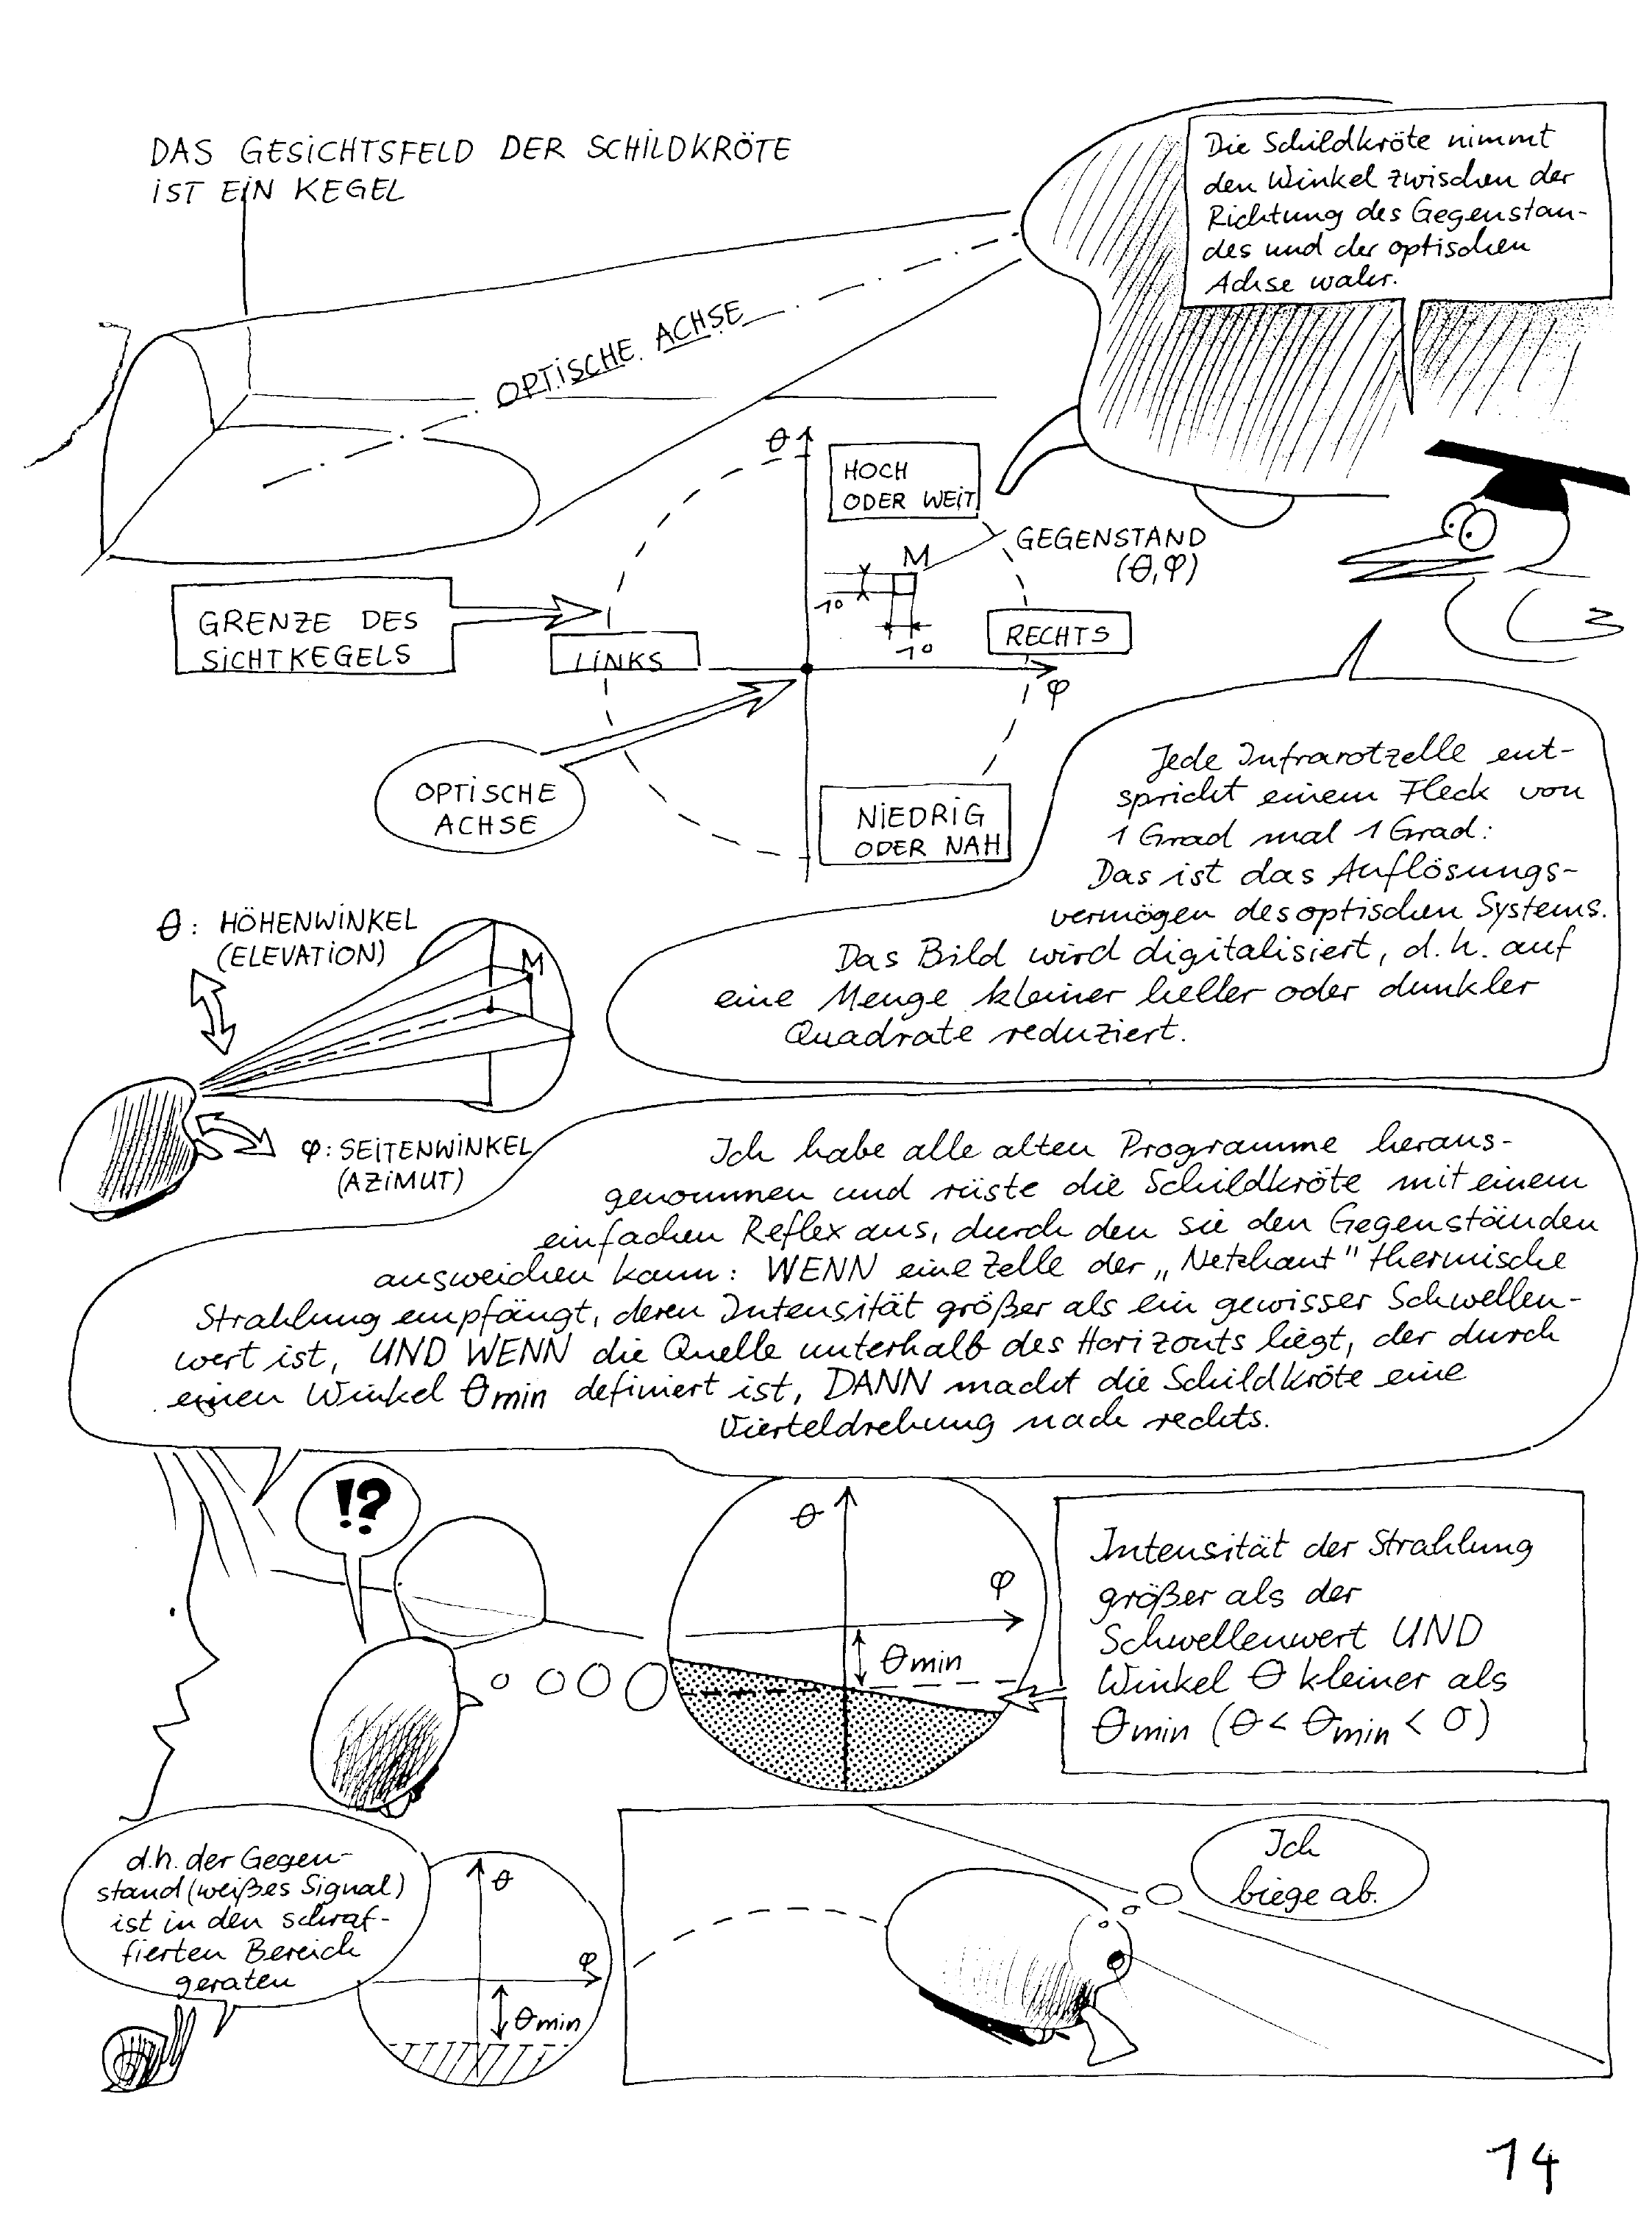 DAS GESICHTSFELD DER SCHILDKRÖTE
IST EIN KEGEL
Die Schildkröte nimmt
den Winkel zwischen der
Richtung des Gegenstan-
des und der optischen
Achse wahr.
OPTISCHE ACHSE
θ
HOCH
ODER WEIT
M
GEGENSTAND
(θ,φ)
1°
1°
GRENZE DES
SICHTKEGELS
LINKS
RECHTS
φ
OPTISCHE
ACHSE
NIEDRIG
ODER NAH
Jede Infrarotzelle ent-
spricht einem Fleck von
1 Grad mal 1 Grad:
Das ist das Auflösungs-
vermögen des optischen Systems.
Das Bild wird digitalisiert, d.h. auf
eine Menge kleiner heller oder dunkler
Quadrate reduziert.
θ: HÖHENWINKEL
(ELEVATION)
M
φ: SEITENWINKEL
(AZIMUT)
Ich habe alle alten Programme heraus-
genommen und rüste die Schildkröte mit einem
einfachen Reflex aus, durch den sie den Gegenständen
ausweichen kann: WENN eine Zelle der „Netzhaut" thermische
Strahlung empfängt, deren Intensität größer als ein gewisser Schwellen-
wert ist, UND WENN die Quelle unterhalb des Horizonts liegt, der durch
einen Winkel θmin definiert ist, DANN macht die Schildkröte eine
Vierteldrehung nach rechts.
!?
θ
φ
θmin
Intensität der Strahlung
größer als der
Schwellenwert UND
Winkel θ kleiner als
θmin (θ < θmin < 0)
d.h. der Gegen-
stand (weißes Signal)
ist in den schraf-
fierten Bereich
geraten
θ
φ
θmin
Ich
biege ab.
14